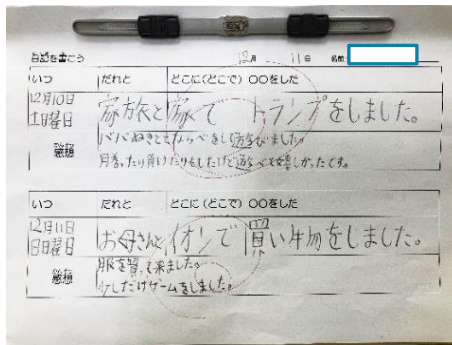 日記を書こう 12月 11日 名前
いつ だれと どこに(どこで) 〇〇をした
12月10日
土曜日 家族と 家で トランプをしました。
感想 ババぬきと七ならべをして遊びました。
勝ったり負けたりもしたけど遊べて嬉しかったです。
いつ だれと どこに(どこで) 〇〇をした
12月11日
日曜日 お母さんと イオンで 買い物をしました。
感想 服を買って来ました。
少しだけゲームをしました。